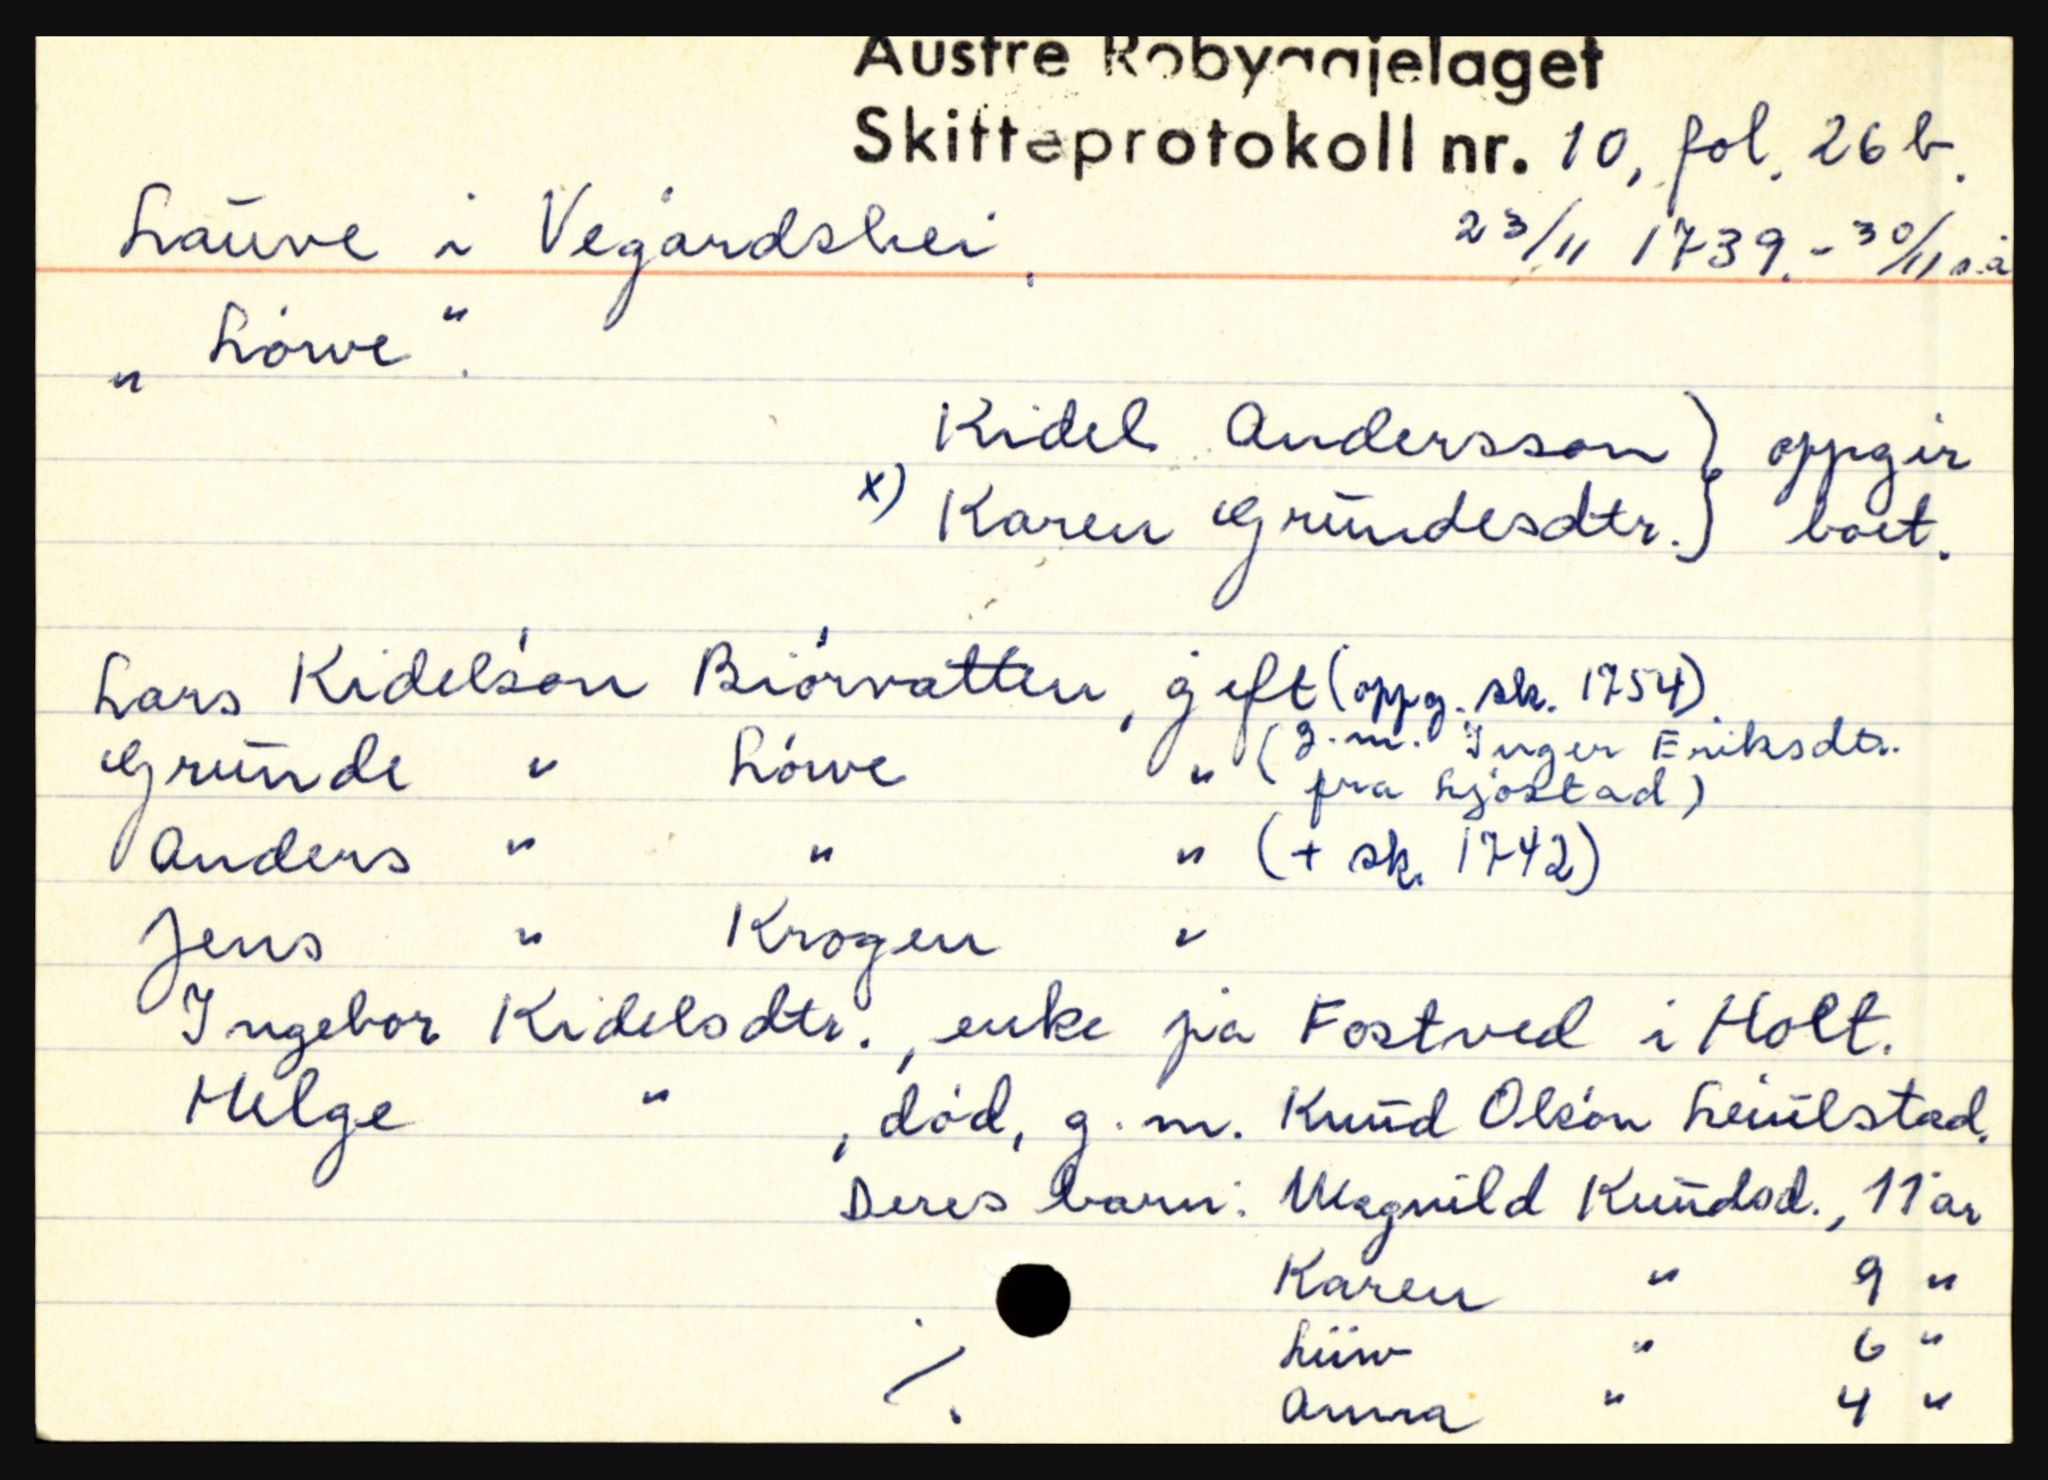 Austre Robyggjelaget
Skifteprotokoll nr. 10, fol. 26 b.
Lauve i Vegårdshei. 23/11 1739. - 30/11 s.å
„ Lówe ".
Kidel Andersson } oppgir
x) Karen Grundesdtr. } boet.
Lars Kidelsón Biórvatten, gift (oppg. sk. 1754)
Grunde " Lówe " (g.m. Inger Eriksdtr.
fra Ljøstad)
Anders " " " (+ sk. 1742)
Jens " Krogen "
Ingebor Kidelsdtr., enke på Fostved i Holt.
Helge " , død, g.m. Knud Olsón Leiulstad.
Deres barn: Magnild Knudsd., 11 år
Karen " 9 "
Liiw " 6 "
Anna " 4 "
./.